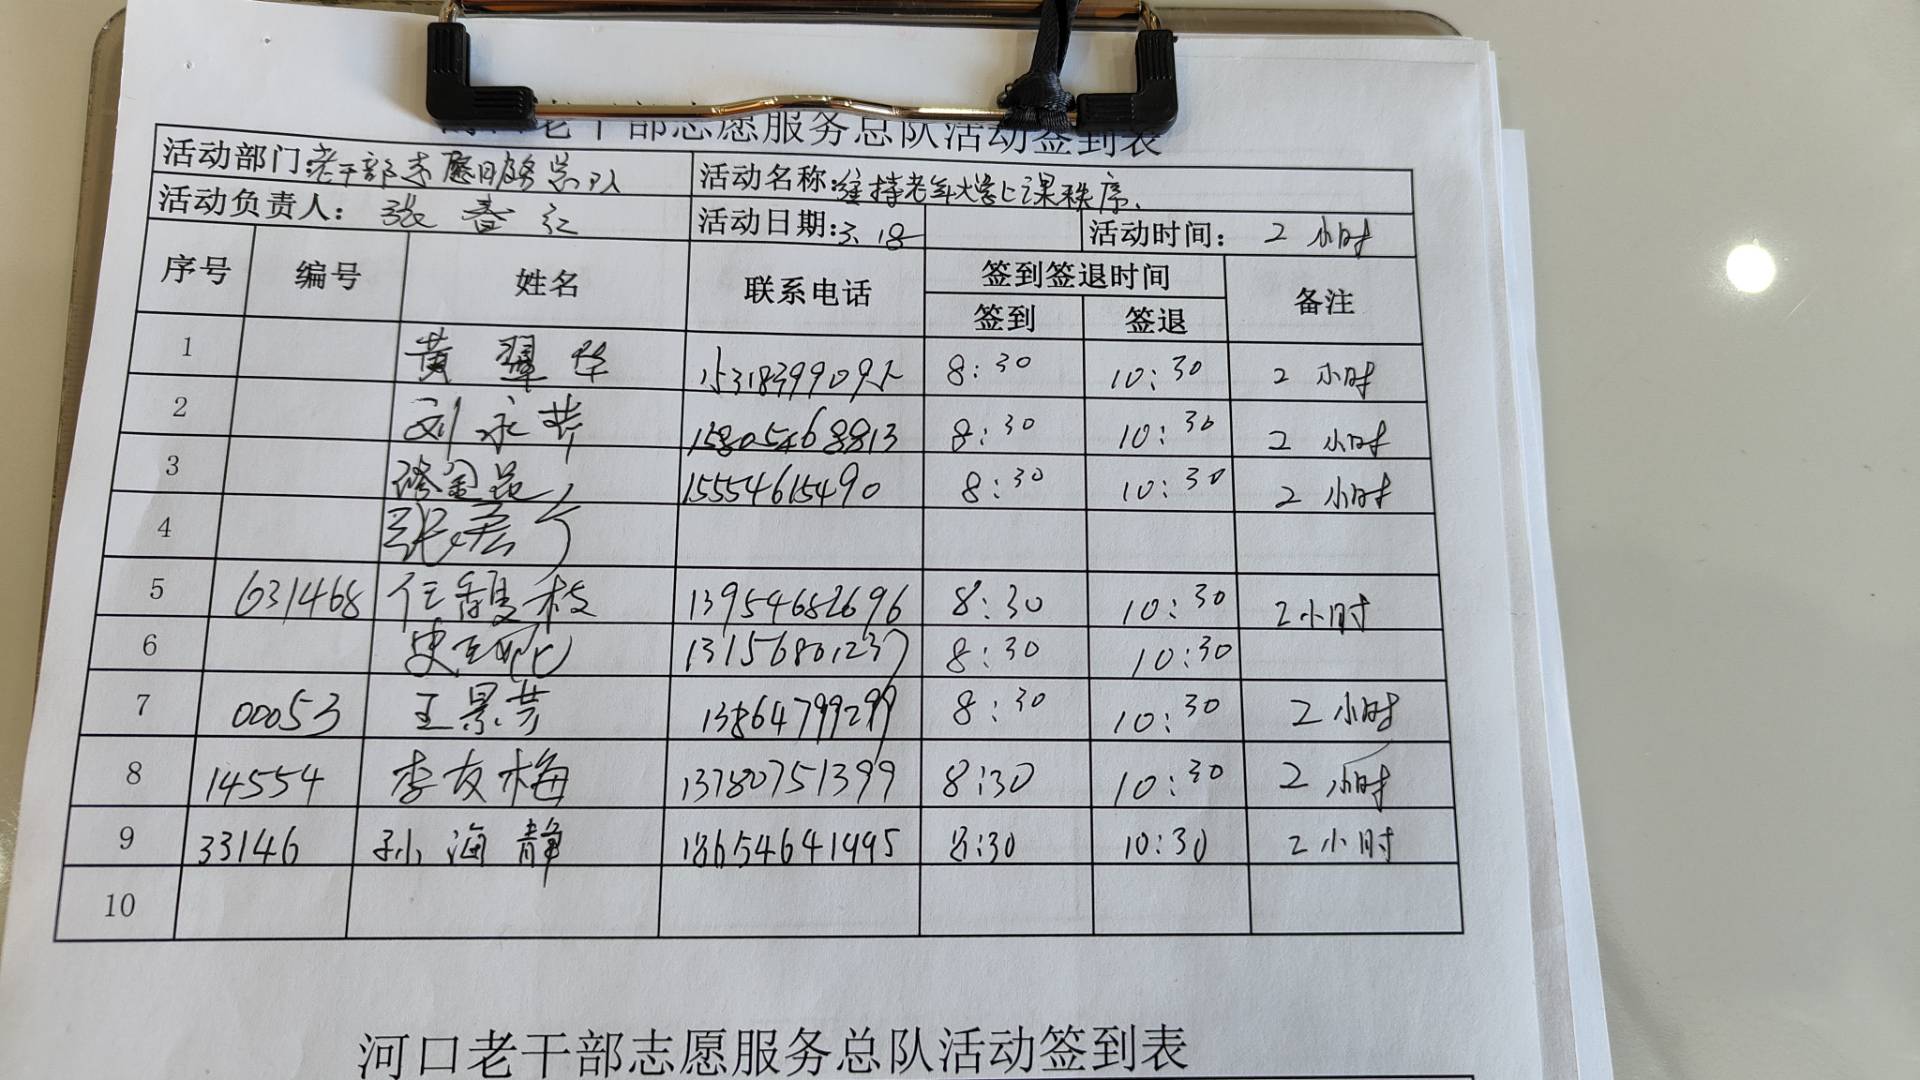 河口老干部志愿服务总队活动签到表
活动部门:老干部志愿服务总队 活动名称:维持老年大学上课秩序.
活动负责人: 张春红 活动日期:3.18 活动时间: 2小时
序号 编号 姓名 联系电话 签到签退时间 备注
签到 签退
1 黄翠华 8:30 10:30 2小时
2 刘永芳 15805468813 8:30 10:30 2小时
3 15554615490 8:30 10:30 2小时
4
5 631468 任馥枝 13954682696 8:30 10:30 2小时
6 13156801237 8:30 10:30
7 00053 王景芳 13864799299 8:30 10:30 2小时
8 14554 李友梅 13780751399 8:30 10:30 2小时
9 33146 孙海静 18654641995 8:30 10:30 2小时
10
河口老干部志愿服务总队活动签到表